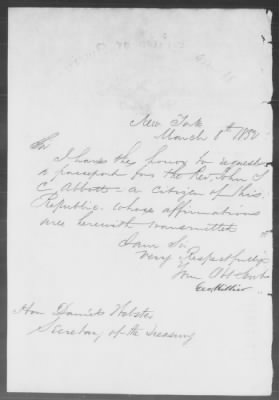 New York
March 8th 1852
Sir
I have the honor to request
a passport for the Rev. John S
C. Abbott - a citizen of this
Republic. whose affirmations
are herewith transmitted
I am Sir
Very Respectfully
Your Obt Servt
Hon Daniel Webster
Secretary of the Treasury